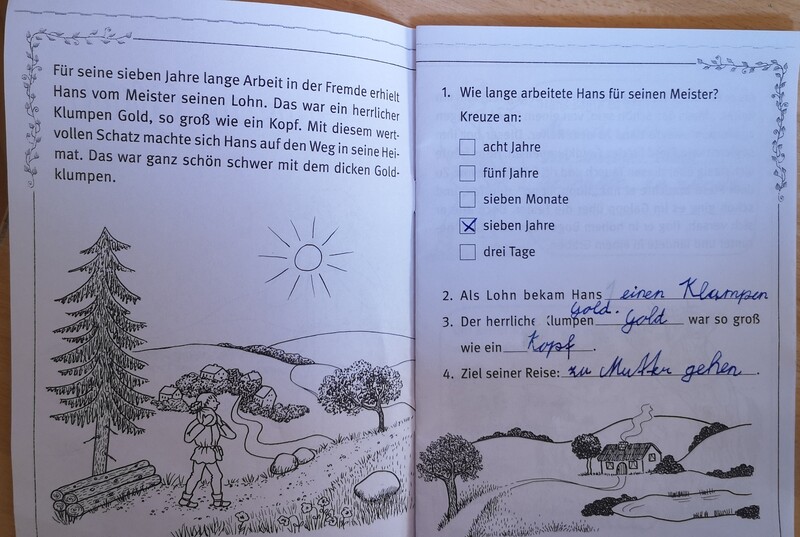 Für seine sieben Jahre lange Arbeit in der Fremde erhielt
Hans vom Meister seinen Lohn. Das war ein herrlicher
Klumpen Gold, so groß wie ein Kopf. Mit diesem wert-
vollen Schatz machte sich Hans auf den Weg in seine Hei-
mat. Das war ganz schön schwer mit dem dicken Gold-
klumpen.
1. Wie lange arbeitete Hans für seinen Meister?
Kreuze an:
acht Jahre
fünf Jahre
sieben Monate
sieben Jahre
drei Tage
2. Als Lohn bekam Hans einen Klumpen
Gold.
3. Der herrliche Klumpen Gold war so groß
wie ein Kopf.
4. Ziel seiner Reise: zu Mutter gehen.